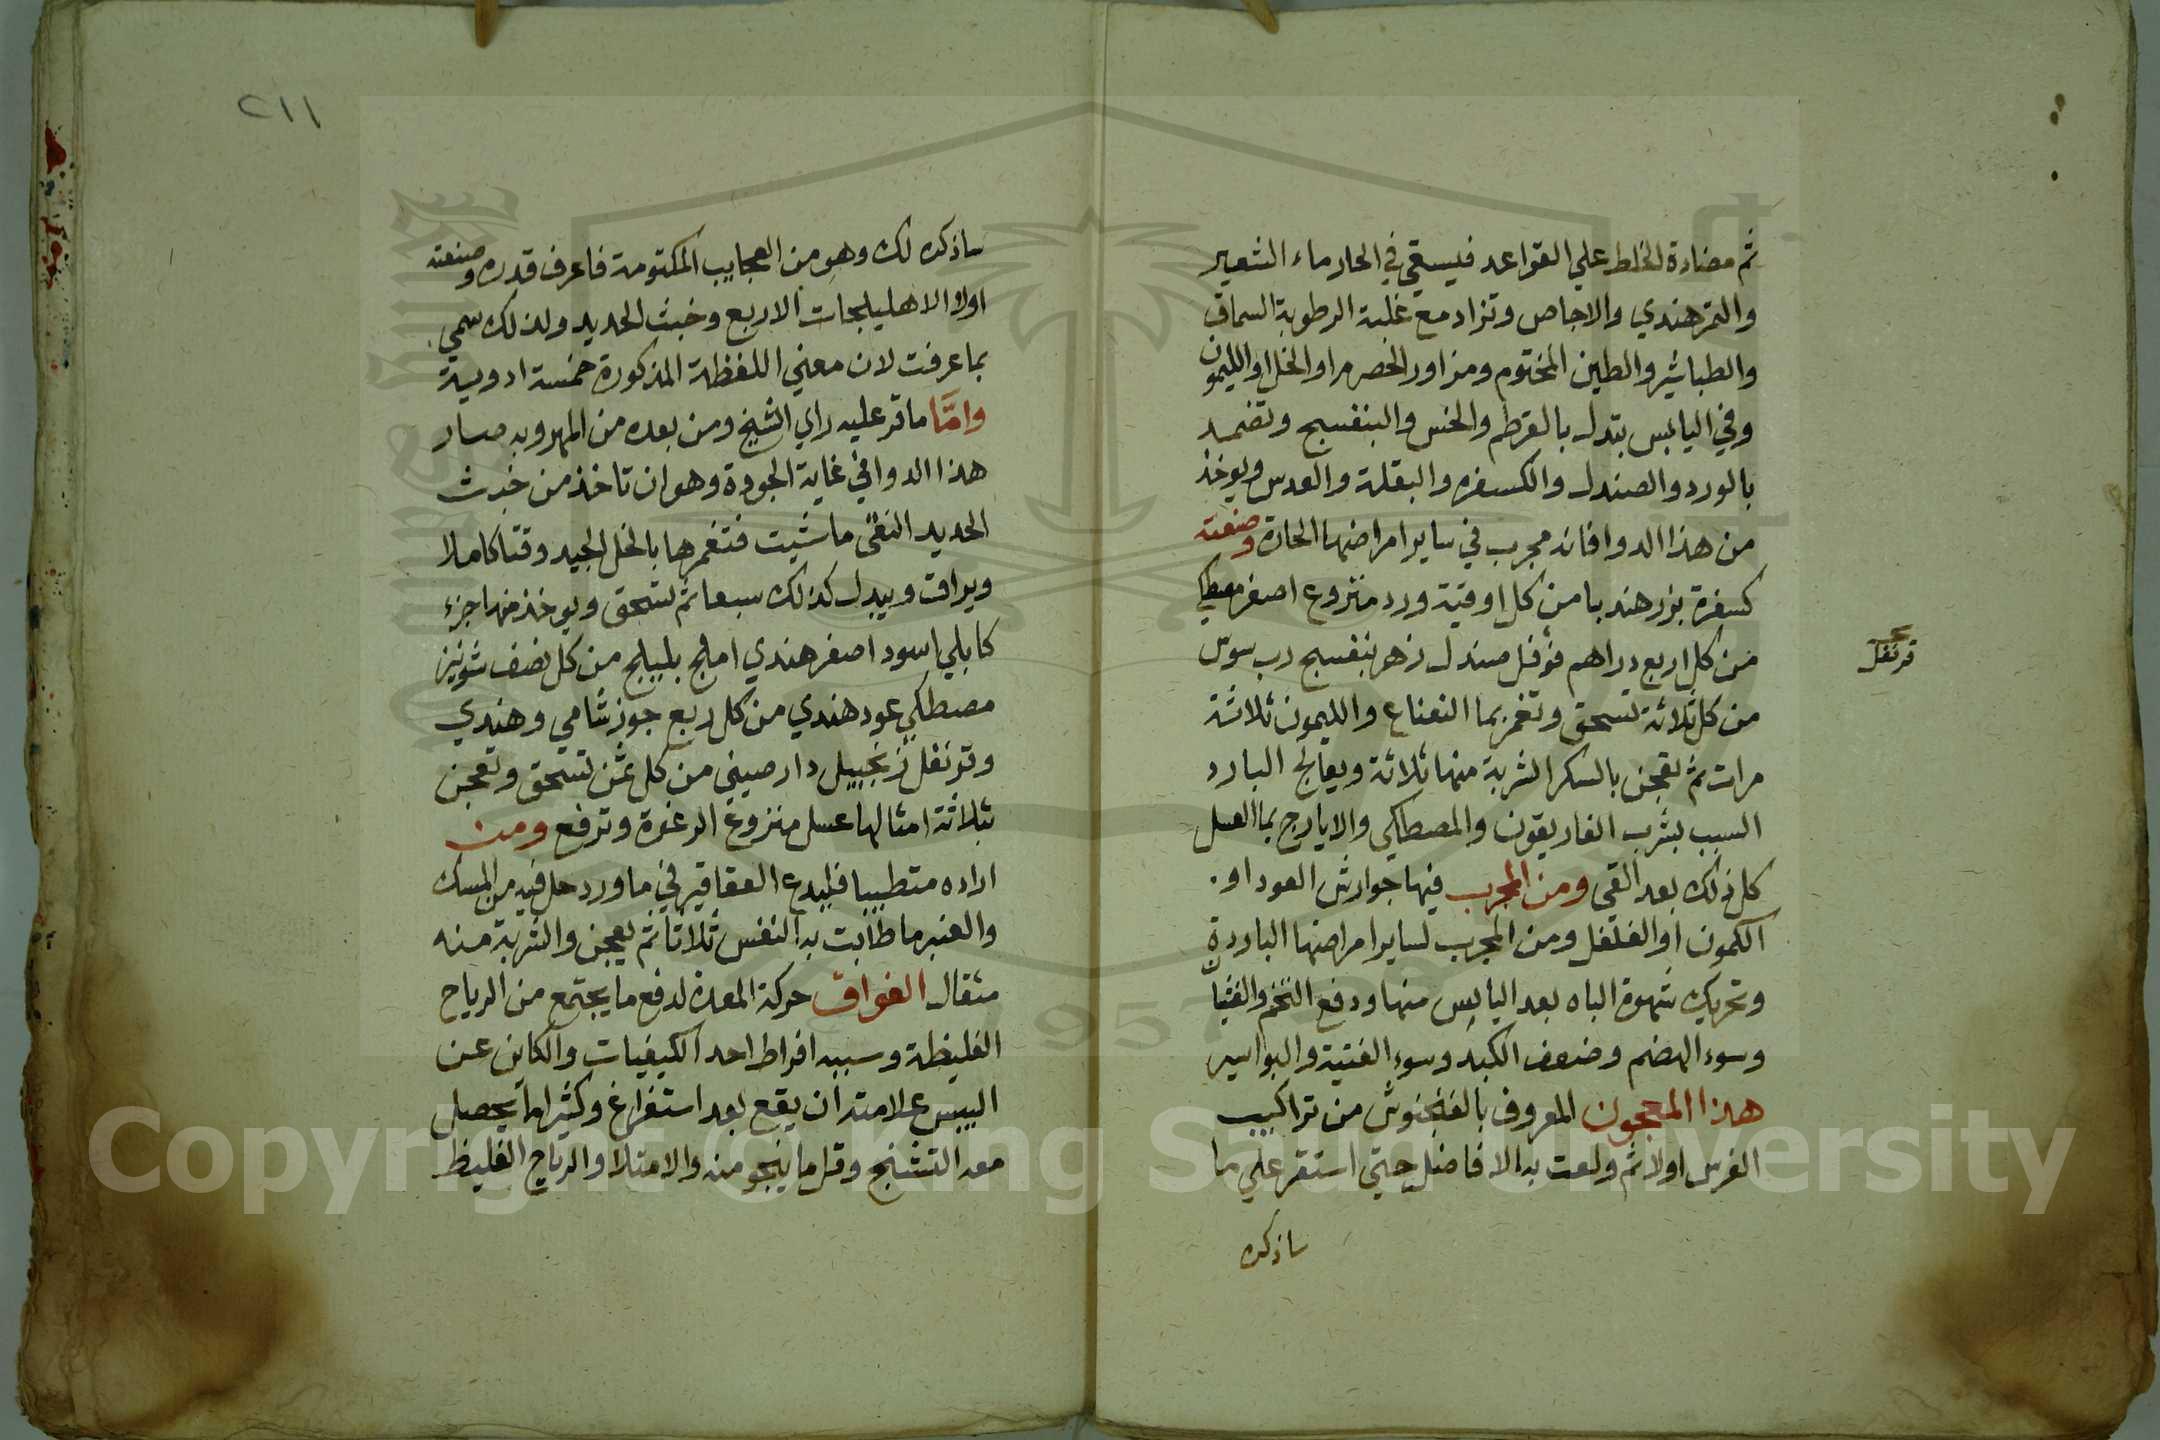 ثم مضادة الخلط علي القواعد فيسقي في الحار ماء الشعير
والتمرهندي والاجاص وتزاد مع غلبة الرطوبة السماق
والطباشير والطين المختوم ومزاور الحصرم او الخل او الليمون
وفي اليابس بتدل بالقرطم والخس والبنفسج وتضمد
بالورد والصندل والكسفره والبقلة والعدس ويوخذ
من هذا الدوا فانه مجرب في ساير امراضها الحارة وصنعته
كسفرة بزر هندبا من كل اوقية ورد منزوع اصفر مصطكي
من كل اربع دراهم فوفل صندل زهر بنفسج رب سوس
من كل ثلاثة تسحق وتغمر بما النعناع والليمون ثلاثة
مرات ثم تعجن بالسكر الشربة منها ثلاثة ويعالج البارد
السبب بشرب الغاريقون والمصطاكي والايارج بما العسل
كل ذلك بعد القي ومن المجرب فيها جوارش العود او
الكمون او الفلفل ومن المجرب لساير امراضها الباردة
وتحريك شهوة الباه بعد اليابس منها ودفع التخم والغثيان
وسوء الهضم وضعف الكبد وسوء القنية والبواسير
هذا المعجون المعروف بالفنجنوش من تراكيب
الفرس اولا ثم ولعت به الافاضل حتي استقر علي ما
ساذكره
قرنفل
٢١١
ساذكره لك وهو من العجايب المكتومة فاعرف قدره وصنعته
اولا الاهليلجات الاربع وخبث الحديد ولذلك سمي
بما عرفت لان معني اللفظة المذكورة خمسة ادوية
وامّا ما قر عليه راي الشيخ ومن بعده من المهرة وبه صار
هذا الدوا في غاية الجودة وهو ان تاخذ من خبث
الحديد النقي ما شيت فتغمرها بالخل الجيد وقتا كاملا
ويراق ويبدل كذلك سبعا ثم تسحق ويوخذ منها جزء
كابلي اسود اصفر هندي املج بليلج من كل نصف شونيز
مصطكي عود هندي من كل ربع جوز شامي وهندي
وقرنفل زنجبيل دارصيني من كل ثمن تسحق وتعجن
بثلاثة امثالها عسل منزوع الرغوة وترفع ومن
اراده متطيبا فليدع العقاقير في ماورد حل فيه من المسك
والعنبر ما طابت به النفس ثلاثا ثم يعجن والشربة منه
مثقال الفواق حركة المعدة لدفع ما يجتمع من الرياح
الغليظة وسببه افراط احد الكيفيات والكاين عن
اليبس علامته ان يقع بعد استفراغ وكثيرا ما يحصل
معه التشنج وقل ما ينجو منه والامتلا والرياح الغليظ
Copyright © King Saud University
1957